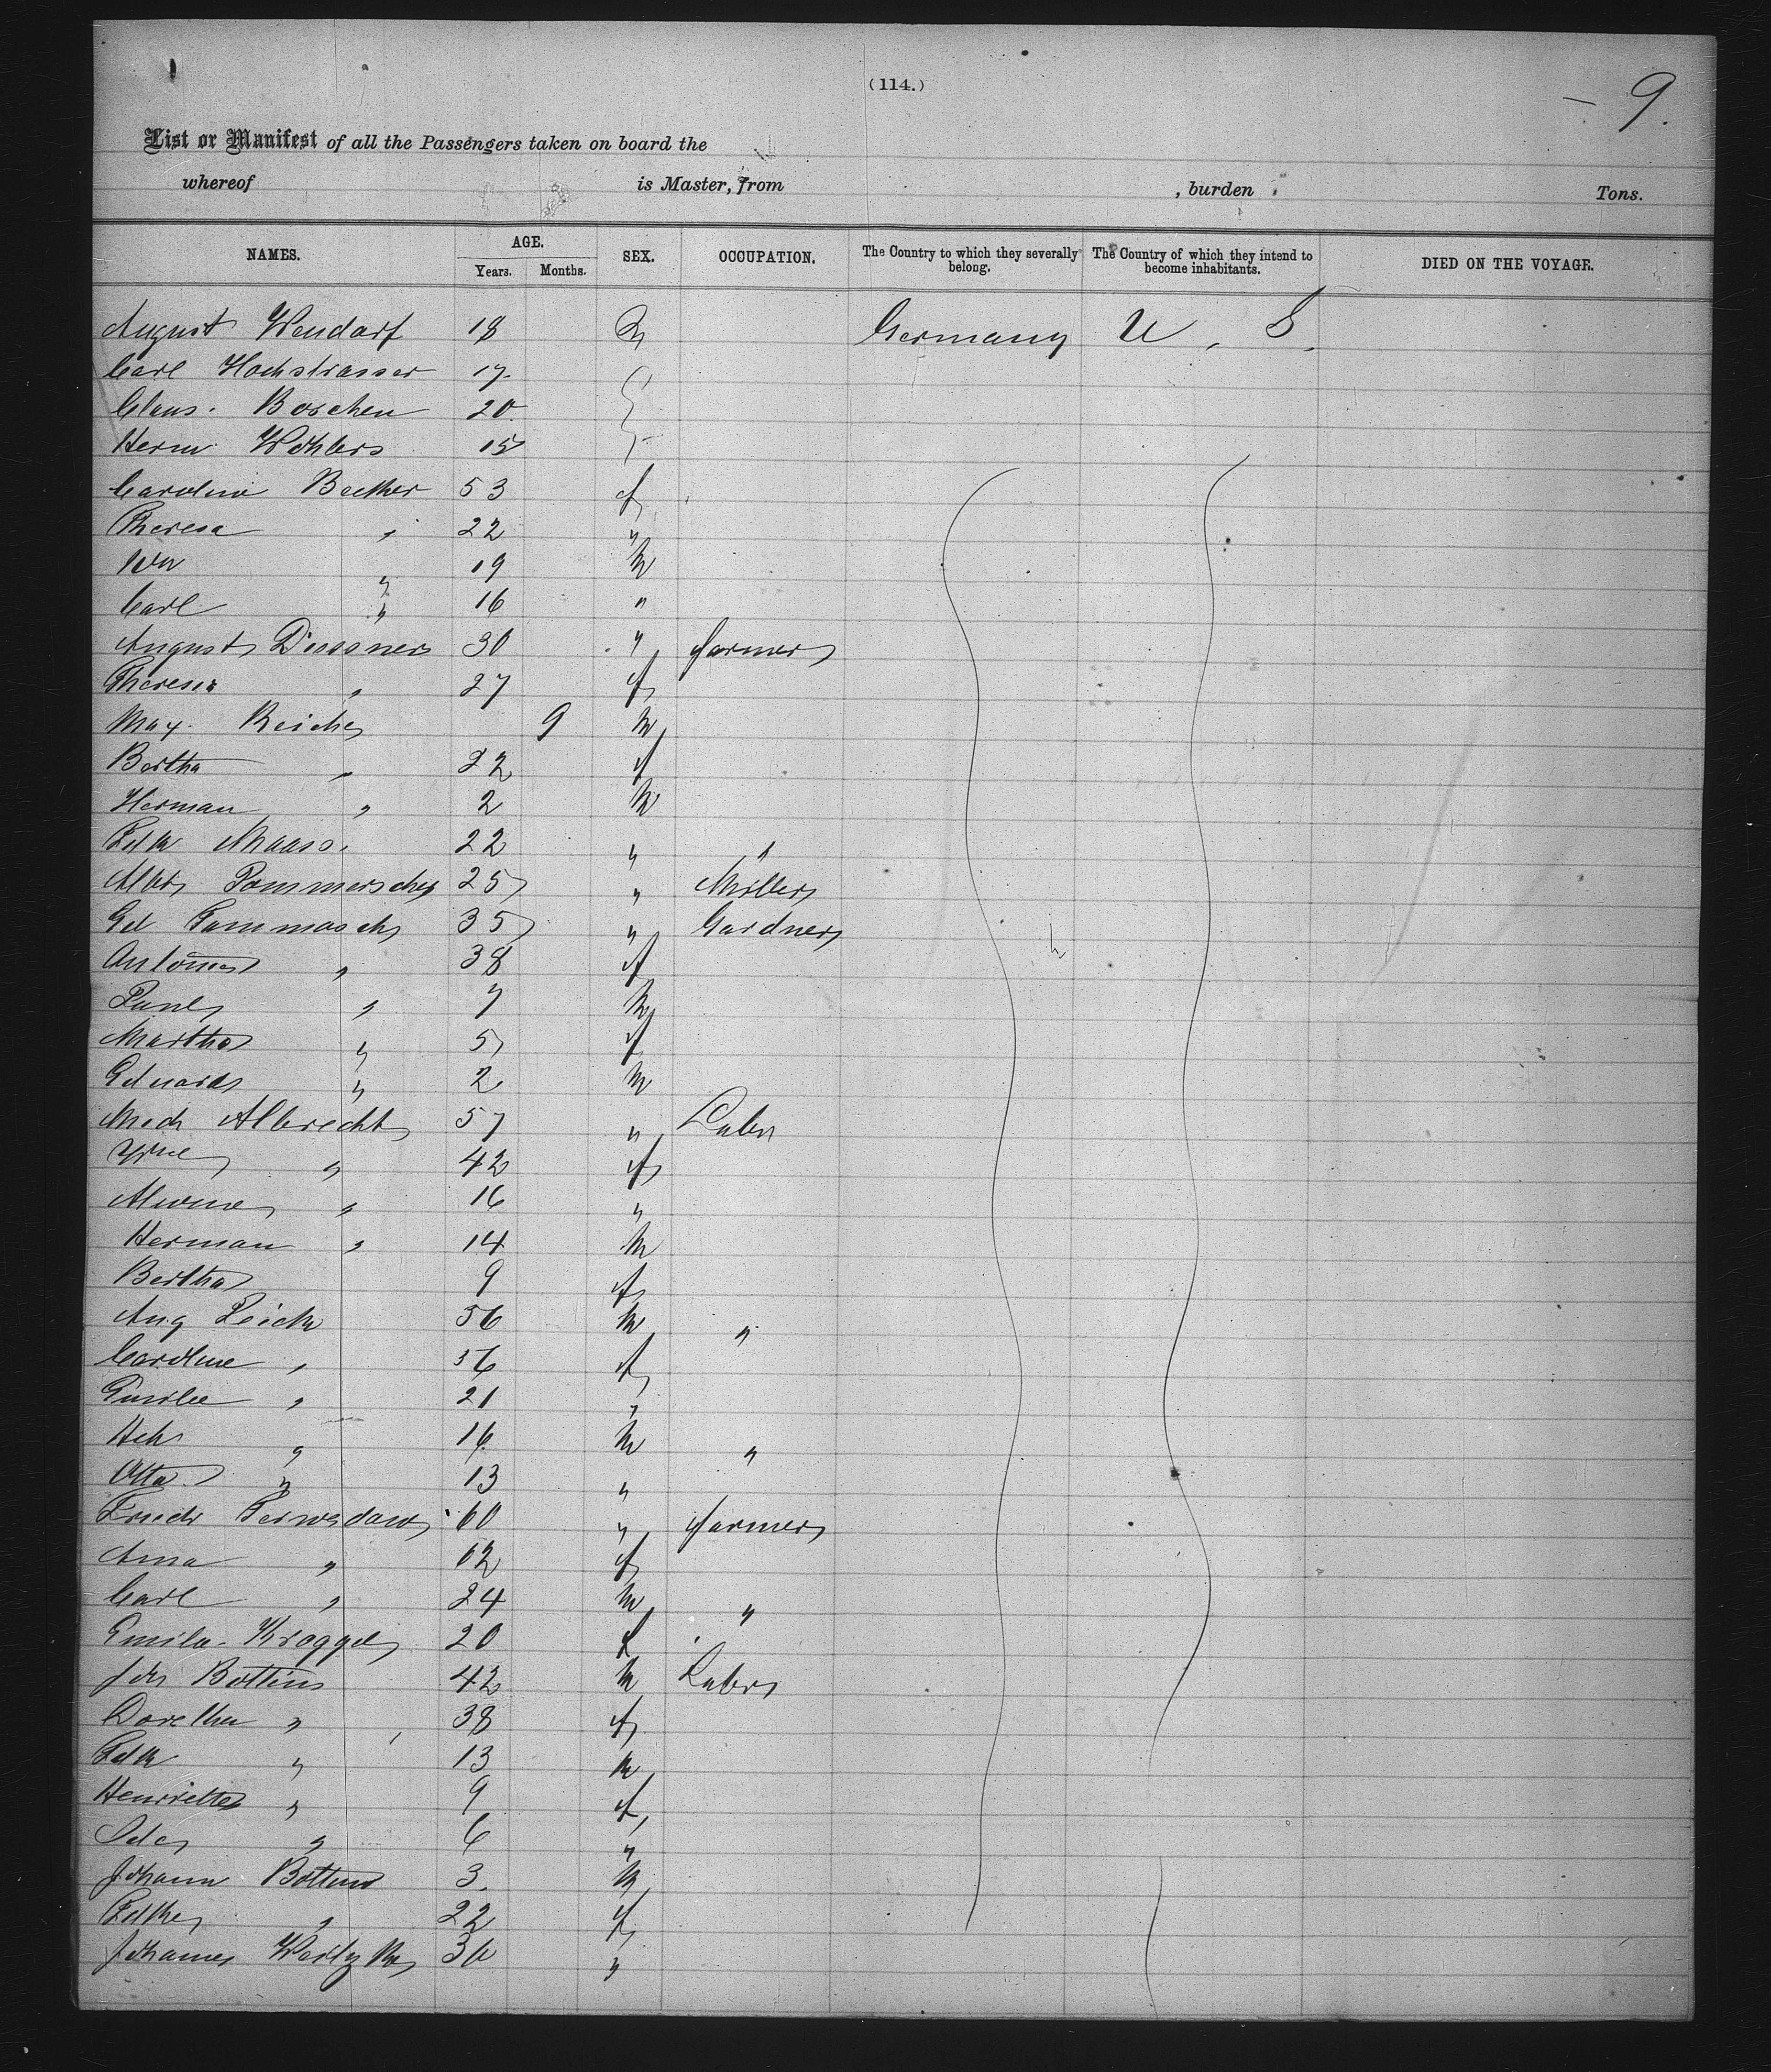 (114.)
– 9.
List or Manifest of all the Passengers taken on board the
whereof is Master, from , burden Tons.
NAMES. AGE. SEX. OCCUPATION. The Country to which they severally belong. The Country of which they intend to become inhabitants. DIED ON THE VOYAGE.
Years. Months.
August Wendorf 18 m Germany U. S.
Carl Hochstrasser 17
Claus. Borchen 20
Herm Wohlers 15
Caroline Becker 53 f
Theresa " 22 "
Wm " 19 m
Carl " 16 "
August Dissner 30 " farmer
Theresia " 27 f
Max. Reiche 9 m
Bertha " 22 f
Herman " 2 m
Fdk Maass. 22 " "
Pommersche 25 " Miller
Ed Tammasch 35 " Gardner
" 38 f
Paul " 7 m
Martha " 5 f
Eduard " 2 m
Mich Albrecht 57 " Labr
" 42 f
Alwine " 16 "
Herman " 14 m
Bertha 9 f
Aug 56 m "
Caroline " 56 f
Emilie " 21 "
Hch " 16 m "
Otto " 13 "
Friedr 60 " farmer
Anna " 62 f
Carl " 24 m "
Kroggel 20 f
Joh Bottins 42 m Labr
Dorethea " 38 f
Fdk " 13 m
Henriette " 9 f
Ida " 6 "
Johann 3. m
" 22 f
Johannes 36 "